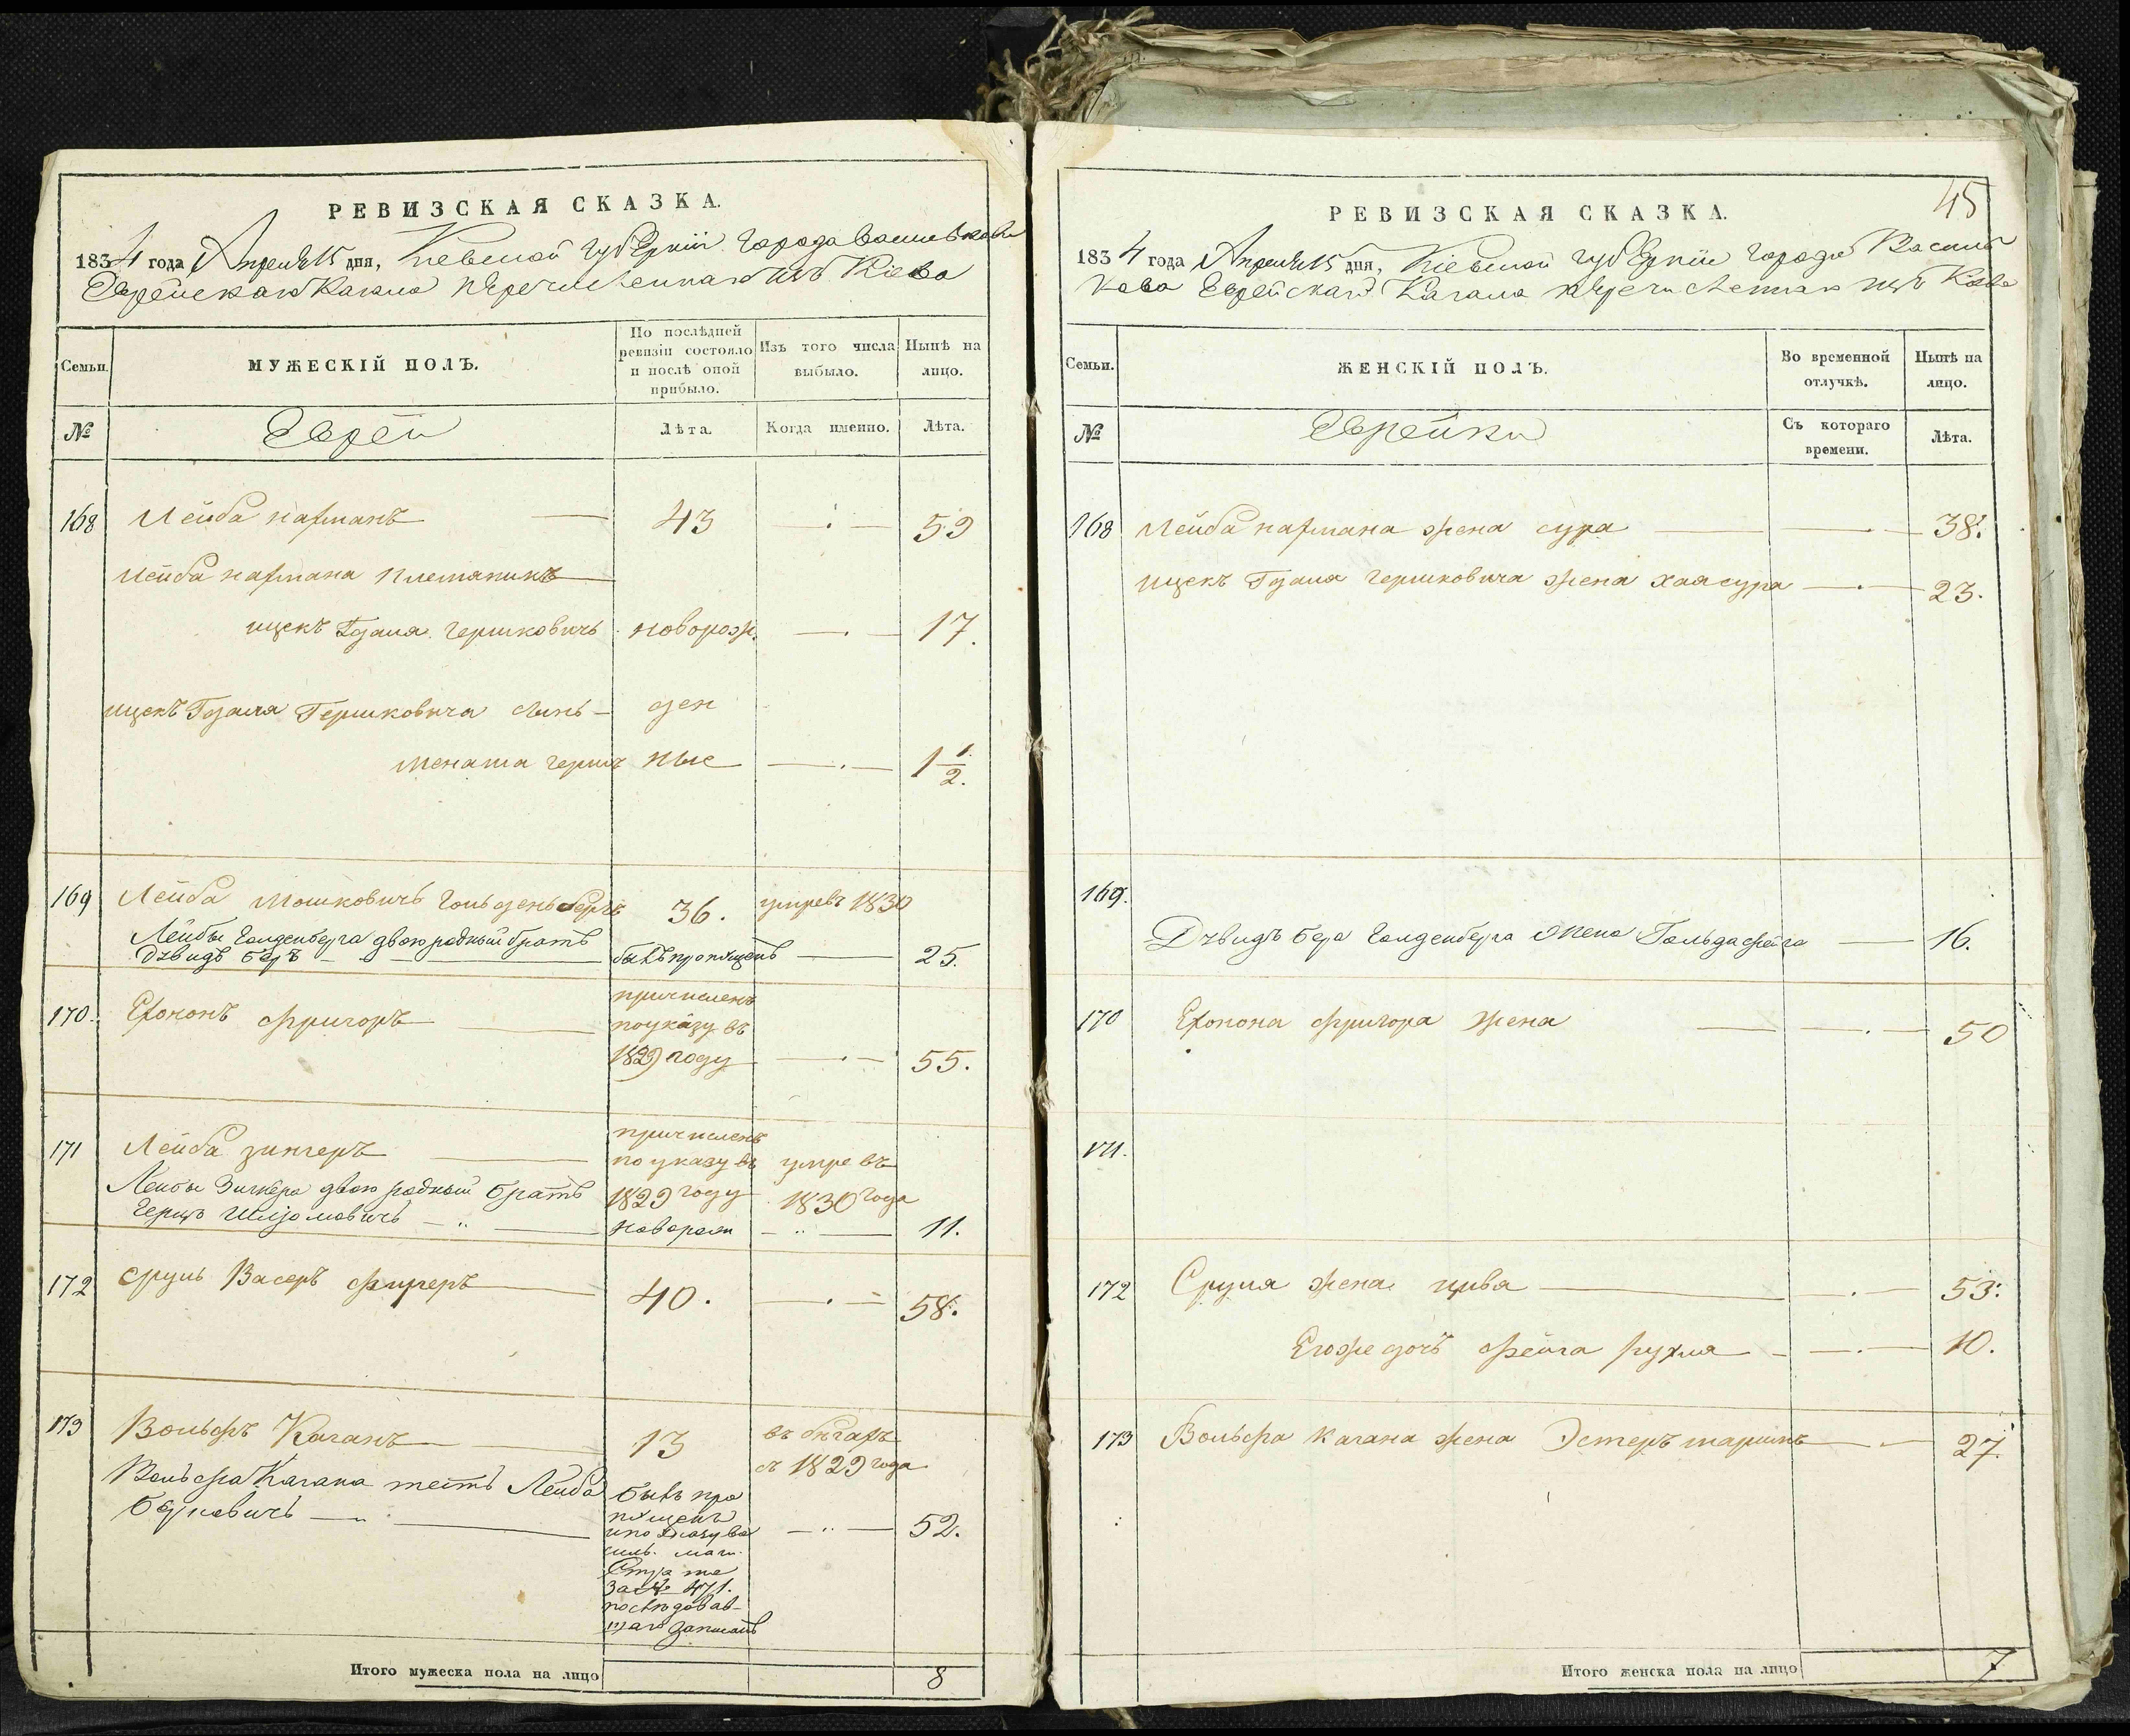 РЕВИЗСКАЯ СКАЗКА.
1834 года Апреля 15 дня, Киевской губернии города Василькова
Еврейскаго Кагала перечисленнаго изъ Кіева
Семьи.
МУЖЕСКІЙ ПОЛЪ.
По послѣдней ревизіи состояло и послѣ оной прибыло.
Изъ того числа выбыло.
Нынѣ на лицо.
№
Евреи
Лѣта
Когда именно.
Лѣта.
168 Лейба нафманъ 43 59
Лейба нафмана племяникъ
ицекъ Гдаля Гершковичь новорож. 17.
ицекъ Гдаля Гершковича сынь ден
менаша герш ные 1 1/2.
169 Лейба Мошковичь Гольденберъ 36. умревъ 1830
Лейбы Голденберга двоюродный братъ
Дзвидъ Беръ былъ пропущенъ 25.
170. фригоръ причисленъ
по указу въ
1829 году 55.
171 Лейба зингеръ причисленъ
по указу въ умре въ
Лейбы Зингера двоюродный братъ 1829 году 1830 года
Герцъ Шлйомовичь новорож 11.
172 Сруль Васеръ фиреръ 40. 58.
173 Вольфъ Каганъ 13 въ бѣгахъ
съ 1829 года
Вольфа Кагана тесть Лейба бывъ про
Берковичь пущенъ
и по указу ва 52.
силь. маги.
Страте
за № 471.
последовав-
шаго записанъ
Итого мужеска пола на лицо 8
45
РЕВИЗСКАЯ СКАЗКА.
1834 года Апреля 15 дня, Кіевской губерніи города Василь
кова Еврейскаго Кагала перечисленнаго изъ Кіева
Семьи.
ЖЕНСКІЙ ПОЛЪ.
Во временной отлучкѣ.
Нынѣ на лицо.
№
Еврейки
Съ котораго времени.
Лѣта.
168 Лейба нафмана жена сура 38.
ицекъ Гдаля Гершковича жена хаясура 23.
169.
Дзвидъ Бера Голденберга жена Гольдафейга 16.
170 фригора жена 50
171.
172 Сруля жена цивя 53.
Егоже дочь фейга рухля 10.
173 Вольфа Кагана жена Эстеръ 27.
Итого женска пола на лицо 7